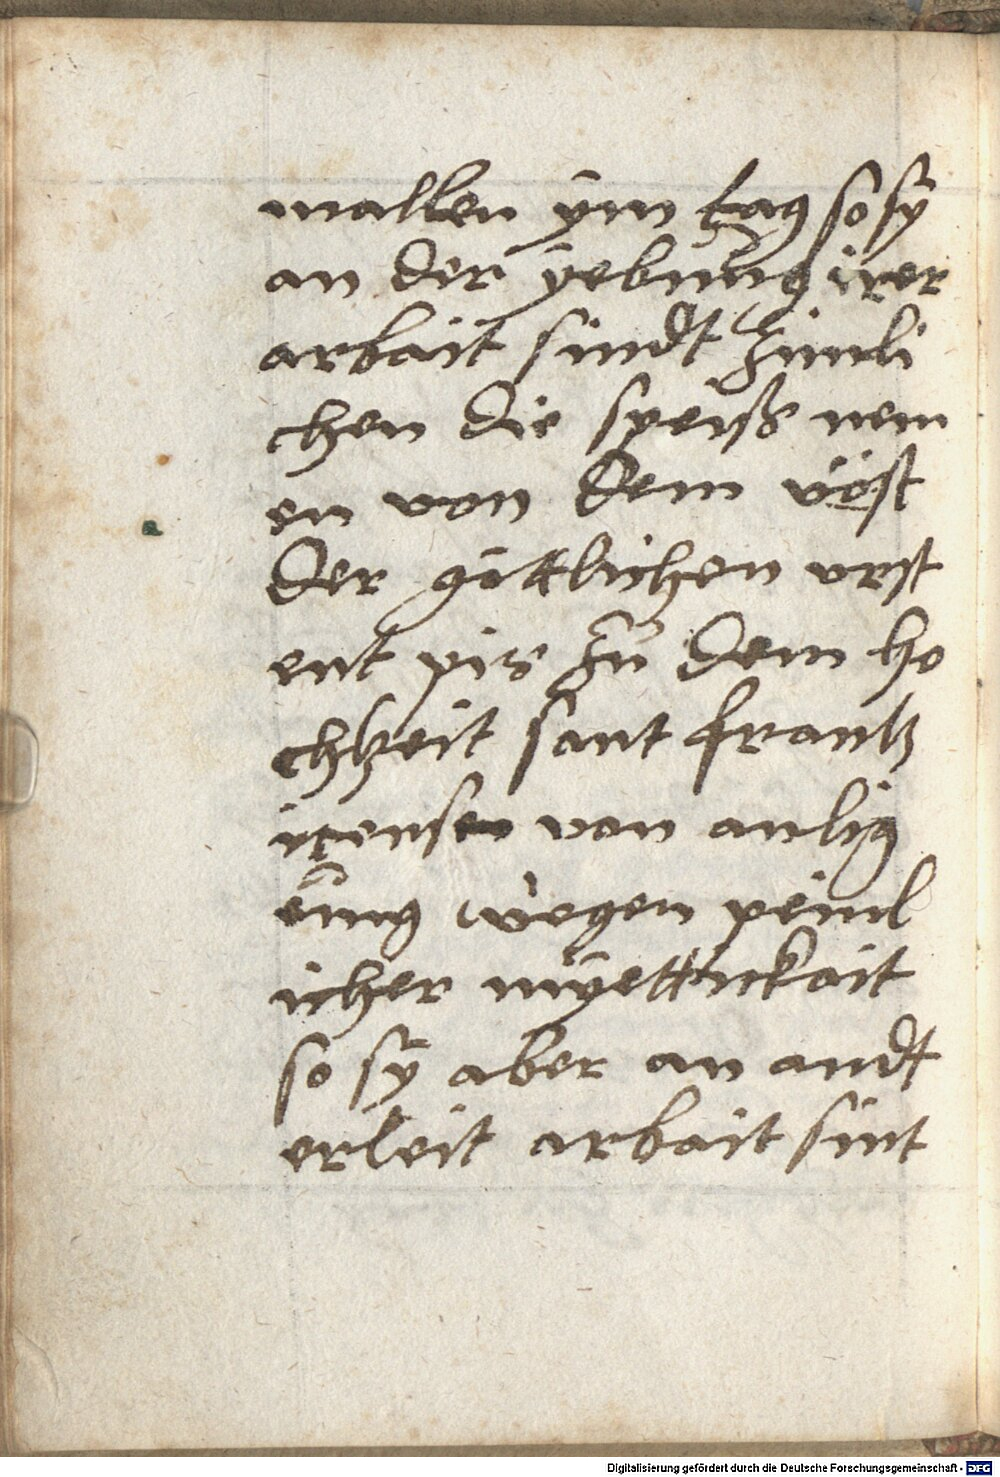 mallen ym tag so sÿ
an der yebung irer
arbait sindt zimli
chen die speiß nem
en von dem vöst
der götlichen vrst
ent pis zu dem ho
chzeit sant frantz
itensen von anlig
ung wegen peinl
icher müettickait
so sÿ aber an andt
erleit arbait sint
Digitalisierung gefördert durch die Deutsche Forschungsgemeinschaft - DFG